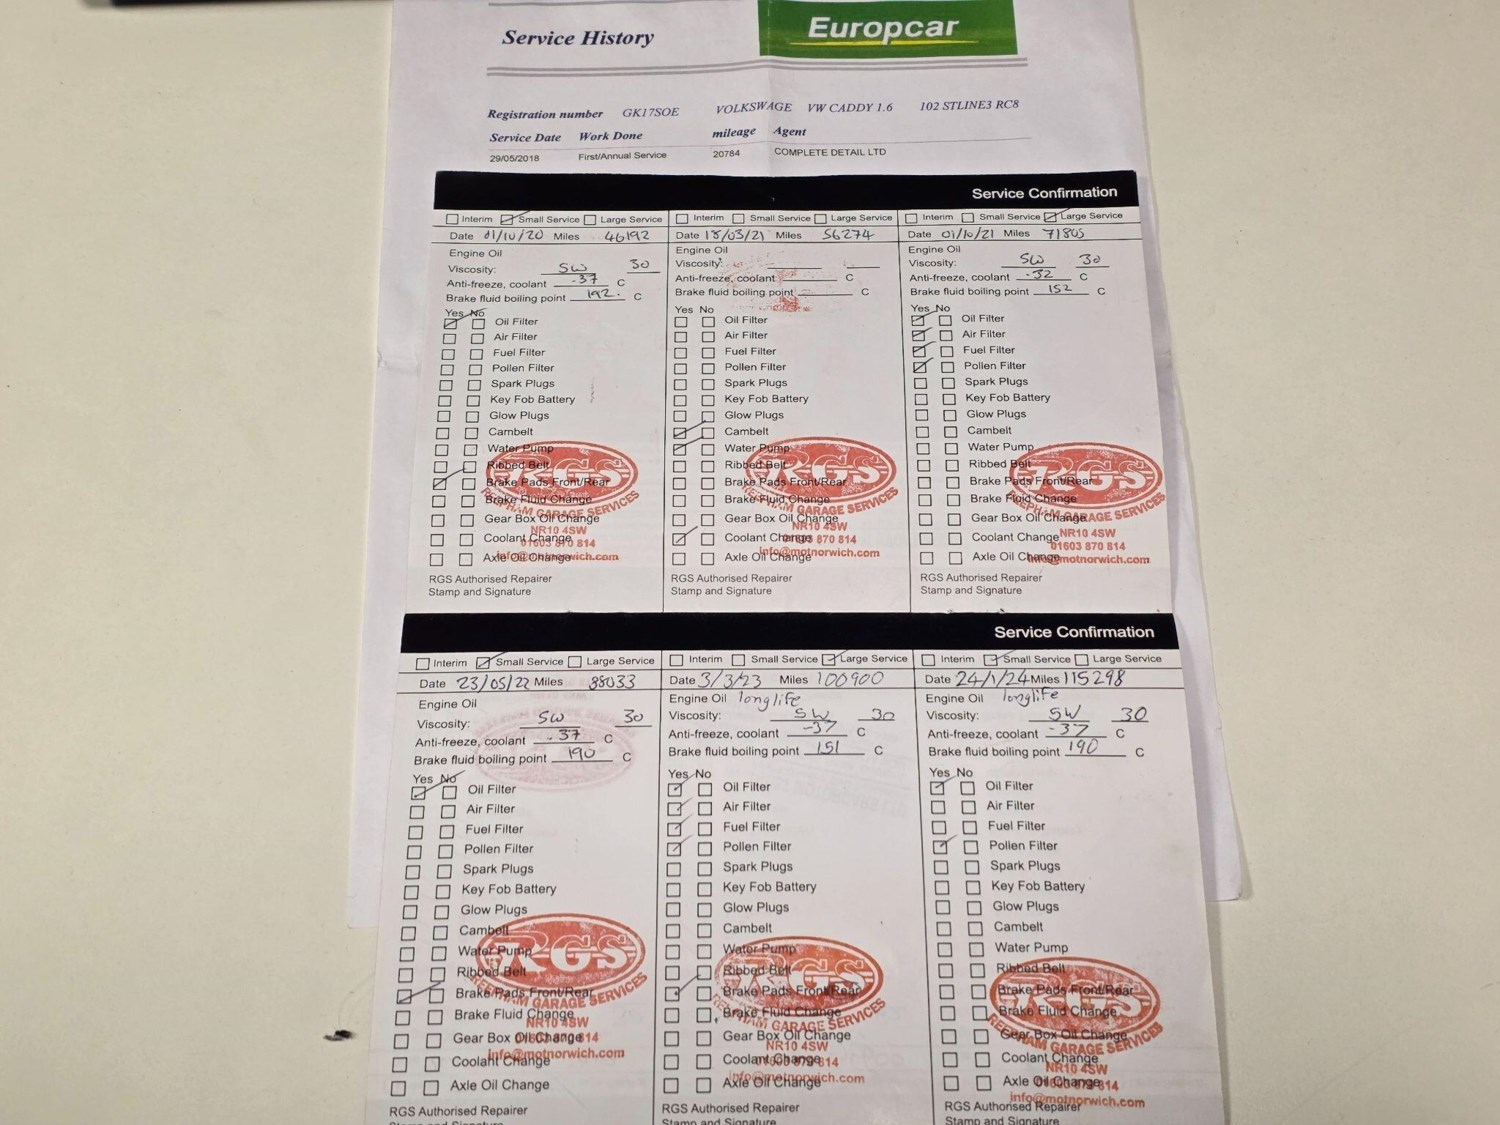 Service History
Europcar
Registration number GK17SOE VOLKSWAGE VW CADDY 1.6 102 STLINE3 RC8
Service Date Work Done mileage Agent
29/05/2018 First/Annual Service 20784 COMPLETE DETAIL LTD
Service Confirmation
Interim Small Service Large Service
Date 01/10/20 Miles 46192
Engine Oil
Viscosity: 5W 30
Anti-freeze, coolant -37 C
Brake fluid boiling point 192. C
Yes No
Oil Filter
Air Filter
Fuel Filter
Pollen Filter
Spark Plugs
Key Fob Battery
Glow Plugs
Cambelt
Water Pump
Ribbed Belt
Brake Pads Front/Rear
Brake Fluid Change
Gear Box Oil Change
Coolant Change
Axle Oil Change
RGS
REEPHAM GARAGE SERVICES
NR10 4SW
01603 870 814
info@motnorwich.com
RGS Authorised Repairer
Stamp and Signature
Interim Small Service Large Service
Date 18/03/21 Miles 56274
Engine Oil
Viscosity:
Anti-freeze, coolant C
Brake fluid boiling point C
Yes No
Oil Filter
Air Filter
Fuel Filter
Pollen Filter
Spark Plugs
Key Fob Battery
Glow Plugs
Cambelt
Water Pump
Ribbed Belt
Brake Pads Front/Rear
Brake Fluid Change
Gear Box Oil Change
Coolant Change
Axle Oil Change
RGS
REEPHAM GARAGE SERVICES
NR10 4SW
01603 870 814
info@motnorwich.com
RGS Authorised Repairer
Stamp and Signature
Interim Small Service Large Service
Date 01/10/21 Miles 71805
Engine Oil
Viscosity: 5W 30
Anti-freeze, coolant -32 C
Brake fluid boiling point 152 C
Yes No
Oil Filter
Air Filter
Fuel Filter
Pollen Filter
Spark Plugs
Key Fob Battery
Glow Plugs
Cambelt
Water Pump
Ribbed Belt
Brake Pads Front/Rear
Brake Fluid Change
Gear Box Oil Change
Coolant Change
Axle Oil Change
RGS
REEPHAM GARAGE SERVICES
NR10 4SW
01603 870 814
info@motnorwich.com
RGS Authorised Repairer
Stamp and Signature
Service Confirmation
Interim Small Service Large Service
Date 23/05/22 Miles 88033
Engine Oil
Viscosity: 5W 30
Anti-freeze, coolant -37 C
Brake fluid boiling point 190 C
Yes No
Oil Filter
Air Filter
Fuel Filter
Pollen Filter
Spark Plugs
Key Fob Battery
Glow Plugs
Cambelt
Water Pump
Ribbed Belt
Brake Pads Front/Rear
Brake Fluid Change
Gear Box Oil Change
Coolant Change
Axle Oil Change
RGS
REEPHAM GARAGE SERVICES
NR10 4SW
01603 870 814
info@motnorwich.com
RGS Authorised Repairer
Stamp and Signature
Interim Small Service Large Service
Date 3/3/23 Miles 100900
Engine Oil longlife
Viscosity: 5W 30
Anti-freeze, coolant -37 C
Brake fluid boiling point 151 C
Yes No
Oil Filter
Air Filter
Fuel Filter
Pollen Filter
Spark Plugs
Key Fob Battery
Glow Plugs
Cambelt
Water Pump
Ribbed Belt
Brake Pads Front/Rear
Brake Fluid Change
Gear Box Oil Change
Coolant Change
Axle Oil Change
RGS
REEPHAM GARAGE SERVICES
NR10 4SW
01603 870 814
info@motnorwich.com
RGS Authorised Repairer
Stamp and Signature
Interim Small Service Large Service
Date 24/1/24 Miles 115298
Engine Oil longlife
Viscosity: 5W 30
Anti-freeze, coolant -37 C
Brake fluid boiling point 190 C
Yes No
Oil Filter
Air Filter
Fuel Filter
Pollen Filter
Spark Plugs
Key Fob Battery
Glow Plugs
Cambelt
Water Pump
Ribbed Belt
Brake Pads Front/Rear
Brake Fluid Change
Gear Box Oil Change
Coolant Change
Axle Oil Change
RGS
REEPHAM GARAGE SERVICES
NR10 4SW
01603 870 814
info@motnorwich.com
RGS Authorised Repairer
Stamp and Signature